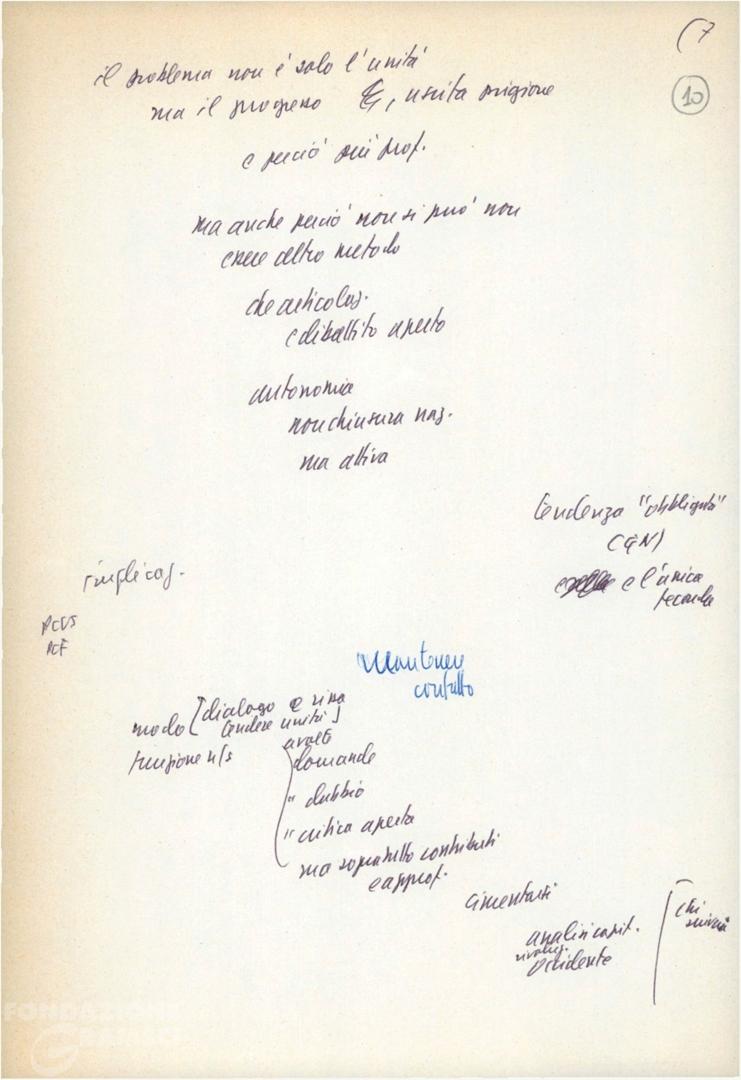 (7
10
il problema non è solo l'unità
ma il progresso , uscita prigione
e perciò più prof.
ma anche perciò non si può non
avere altro metodo
che articolaz.
e dibattito aperto
autonomia
non chiusura naz.
ma attiva
tendenza "obbligata"
e l'unica
feconda
semplicaz.
PCUS
PCF
Mantenere
contatto
modo [dialogo e
tendere unità]
funzione n/s
avalt
domande
" dubbio
" critica aperta
ma sopratutto contributi
e approf.
cimentarsi
analisi capit.
rivoluz.
occidente
chi
FONDAZIONE
GRAMSCI